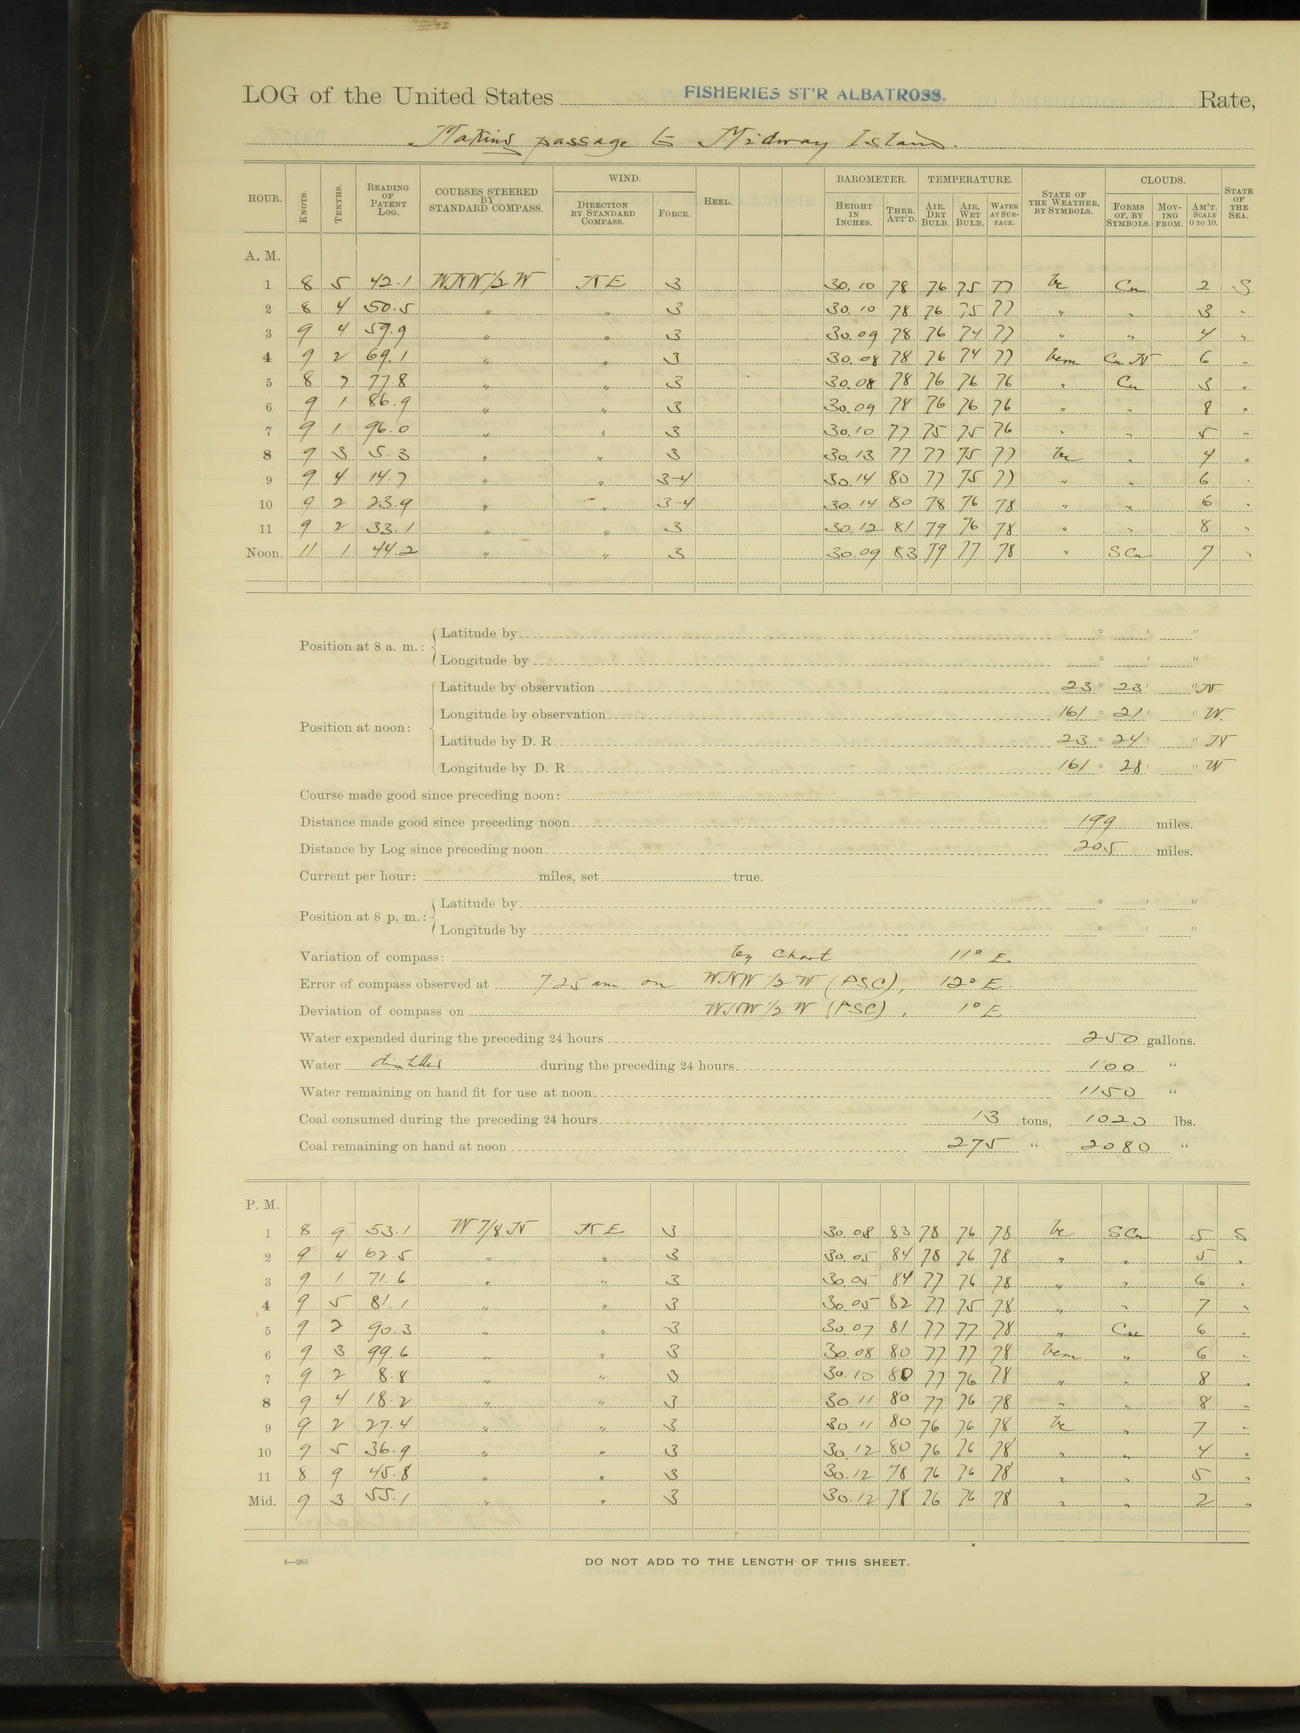 LOG of the United States FISHERIES ST'R ALBATROSS. Rate,
Making passage to Midway Island.
HOUR. KNOTS. TENTHS. READING OF PATENT LOG. COURSES STEERED BY STANDARD COMPASS. WIND. DIRECTION BY STANDARD COMPASS. FORCE. HEEL. BAROMETER. HEIGHT IN INCHES. THER. ATT'D. TEMPERATURE. AIR, DRY BULB. AIR, WET BULB. WATER AT SURFACE. STATE OF THE WEATHER, BY SYMBOLS. CLOUDS. FORMS OF, BY SYMBOLS. MOVING FROM. AM'T. SCALE 0 TO 10. STATE OF THE SEA.
A. M.
1 8 5 42.1 WNW 1/2 W NE 3 30.10 78 76 75 77 bc Cu 2 S
2 8 4 50.5 " " 3 30.10 78 76 75 77 " " 3 "
3 9 4 59.9 " " 3 30.09 78 76 74 77 " " 4 "
4 9 2 69.1 " " 3 30.08 78 76 74 77 bcm Cu N 6 "
5 8 7 77.8 " " 3 30.08 78 76 76 76 " Cu 3 "
6 9 1 86.9 " " 3 30.09 78 76 76 76 " " 8 "
7 9 1 96.0 " " 3 30.10 77 75 75 76 " " 5 "
8 9 3 5.3 " " 3 30.13 77 77 75 77 bc " 4 "
9 9 4 14.7 " " 3-4 30.14 80 77 75 77 " " 6 "
10 9 2 23.9 " " 3-4 30.14 80 78 76 78 " " 6 "
11 9 2 33.1 " " 3 30.12 81 79 76 78 " " 8 "
Noon. 11 1 44.2 " " 3 30.09 83 79 77 78 " S Cu 7 "
Position at 8 a. m.: Latitude by ° ' "
Longitude by ° ' "
Position at noon: Latitude by observation 23° 23' " N
Longitude by observation 161° 21' " W.
Latitude by D. R. 23° 24' " N
Longitude by D. R. 161° 28' " W
Course made good since preceding noon:
Distance made good since preceding noon 199 miles.
Distance by Log since preceding noon 205 miles.
Current per hour: miles, set true.
Position at 8 p. m.: Latitude by ° ' "
Longitude by ° ' "
Variation of compass: by Chart 11° E.
Error of compass observed at 7-25 am on WNW 1/2 W (PSC), 12° E.
Deviation of compass on WNW 1/2 W (PSC), 1° E.
Water expended during the preceding 24 hours 250 gallons.
Water distilled during the preceding 24 hours 100 "
Water remaining on hand fit for use at noon 1150 "
Coal consumed during the preceding 24 hours 13 tons, 1020 lbs.
Coal remaining on hand at noon 275 " 2080 "
P. M.
1 8 9 53.1 W 7/8 N NE 3 30.08 83 78 76 78 bc S Cu 5 S
2 9 4 62.5 " " 3 30.05 84 78 76 78 " " 5 "
3 9 1 71.6 " " 3 30.05 84 77 76 78 " " 6 "
4 9 5 81.1 " " 3 30.05 82 77 75 78 " " 7 "
5 9 2 90.3 " " 3 30.07 81 77 77 78 " Cu 6 "
6 9 3 99.6 " " 3 30.08 80 77 77 78 bcm " 6 "
7 9 2 8.8 " " 3 30.10 80 77 76 78 " " 8 "
8 9 4 18.2 " " 3 30.11 80 77 76 78 " " 8 "
9 9 2 27.4 " " 3 30.11 80 76 76 78 bc " 7 "
10 9 5 36.9 " " 3 30.12 80 76 76 78 " " 4 "
11 8 9 45.8 " " 3 30.12 78 76 76 78 " " 5 "
Mid. 9 3 55.1 " " 3 30.12 78 76 76 78 " " 2 "
4—265 DO NOT ADD TO THE LENGTH OF THIS SHEET.